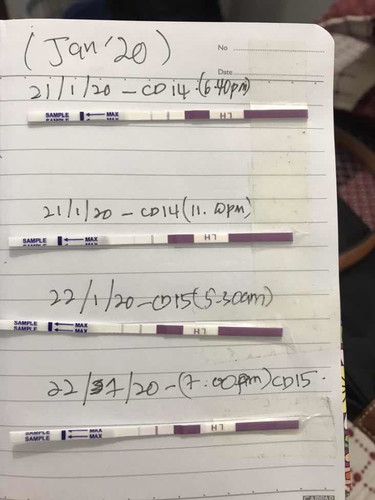 (Jan'20)
No
Date
21/1/20 - CD14 (6.40pm)
SAMPLE MAX LH
SAMPLE MAX
21/1/20 - CD14 (11. pm)
SAMPLE MAX LH
SAMPLE MAX
22/1/20 - CD15 (5.30am)
SAMPLE MAX LH
SAMPLE MAX
22/1/20 - (7.00pm) CD15.
SAMPLE MAX LH
SAMPLE MAX
CAMPAP